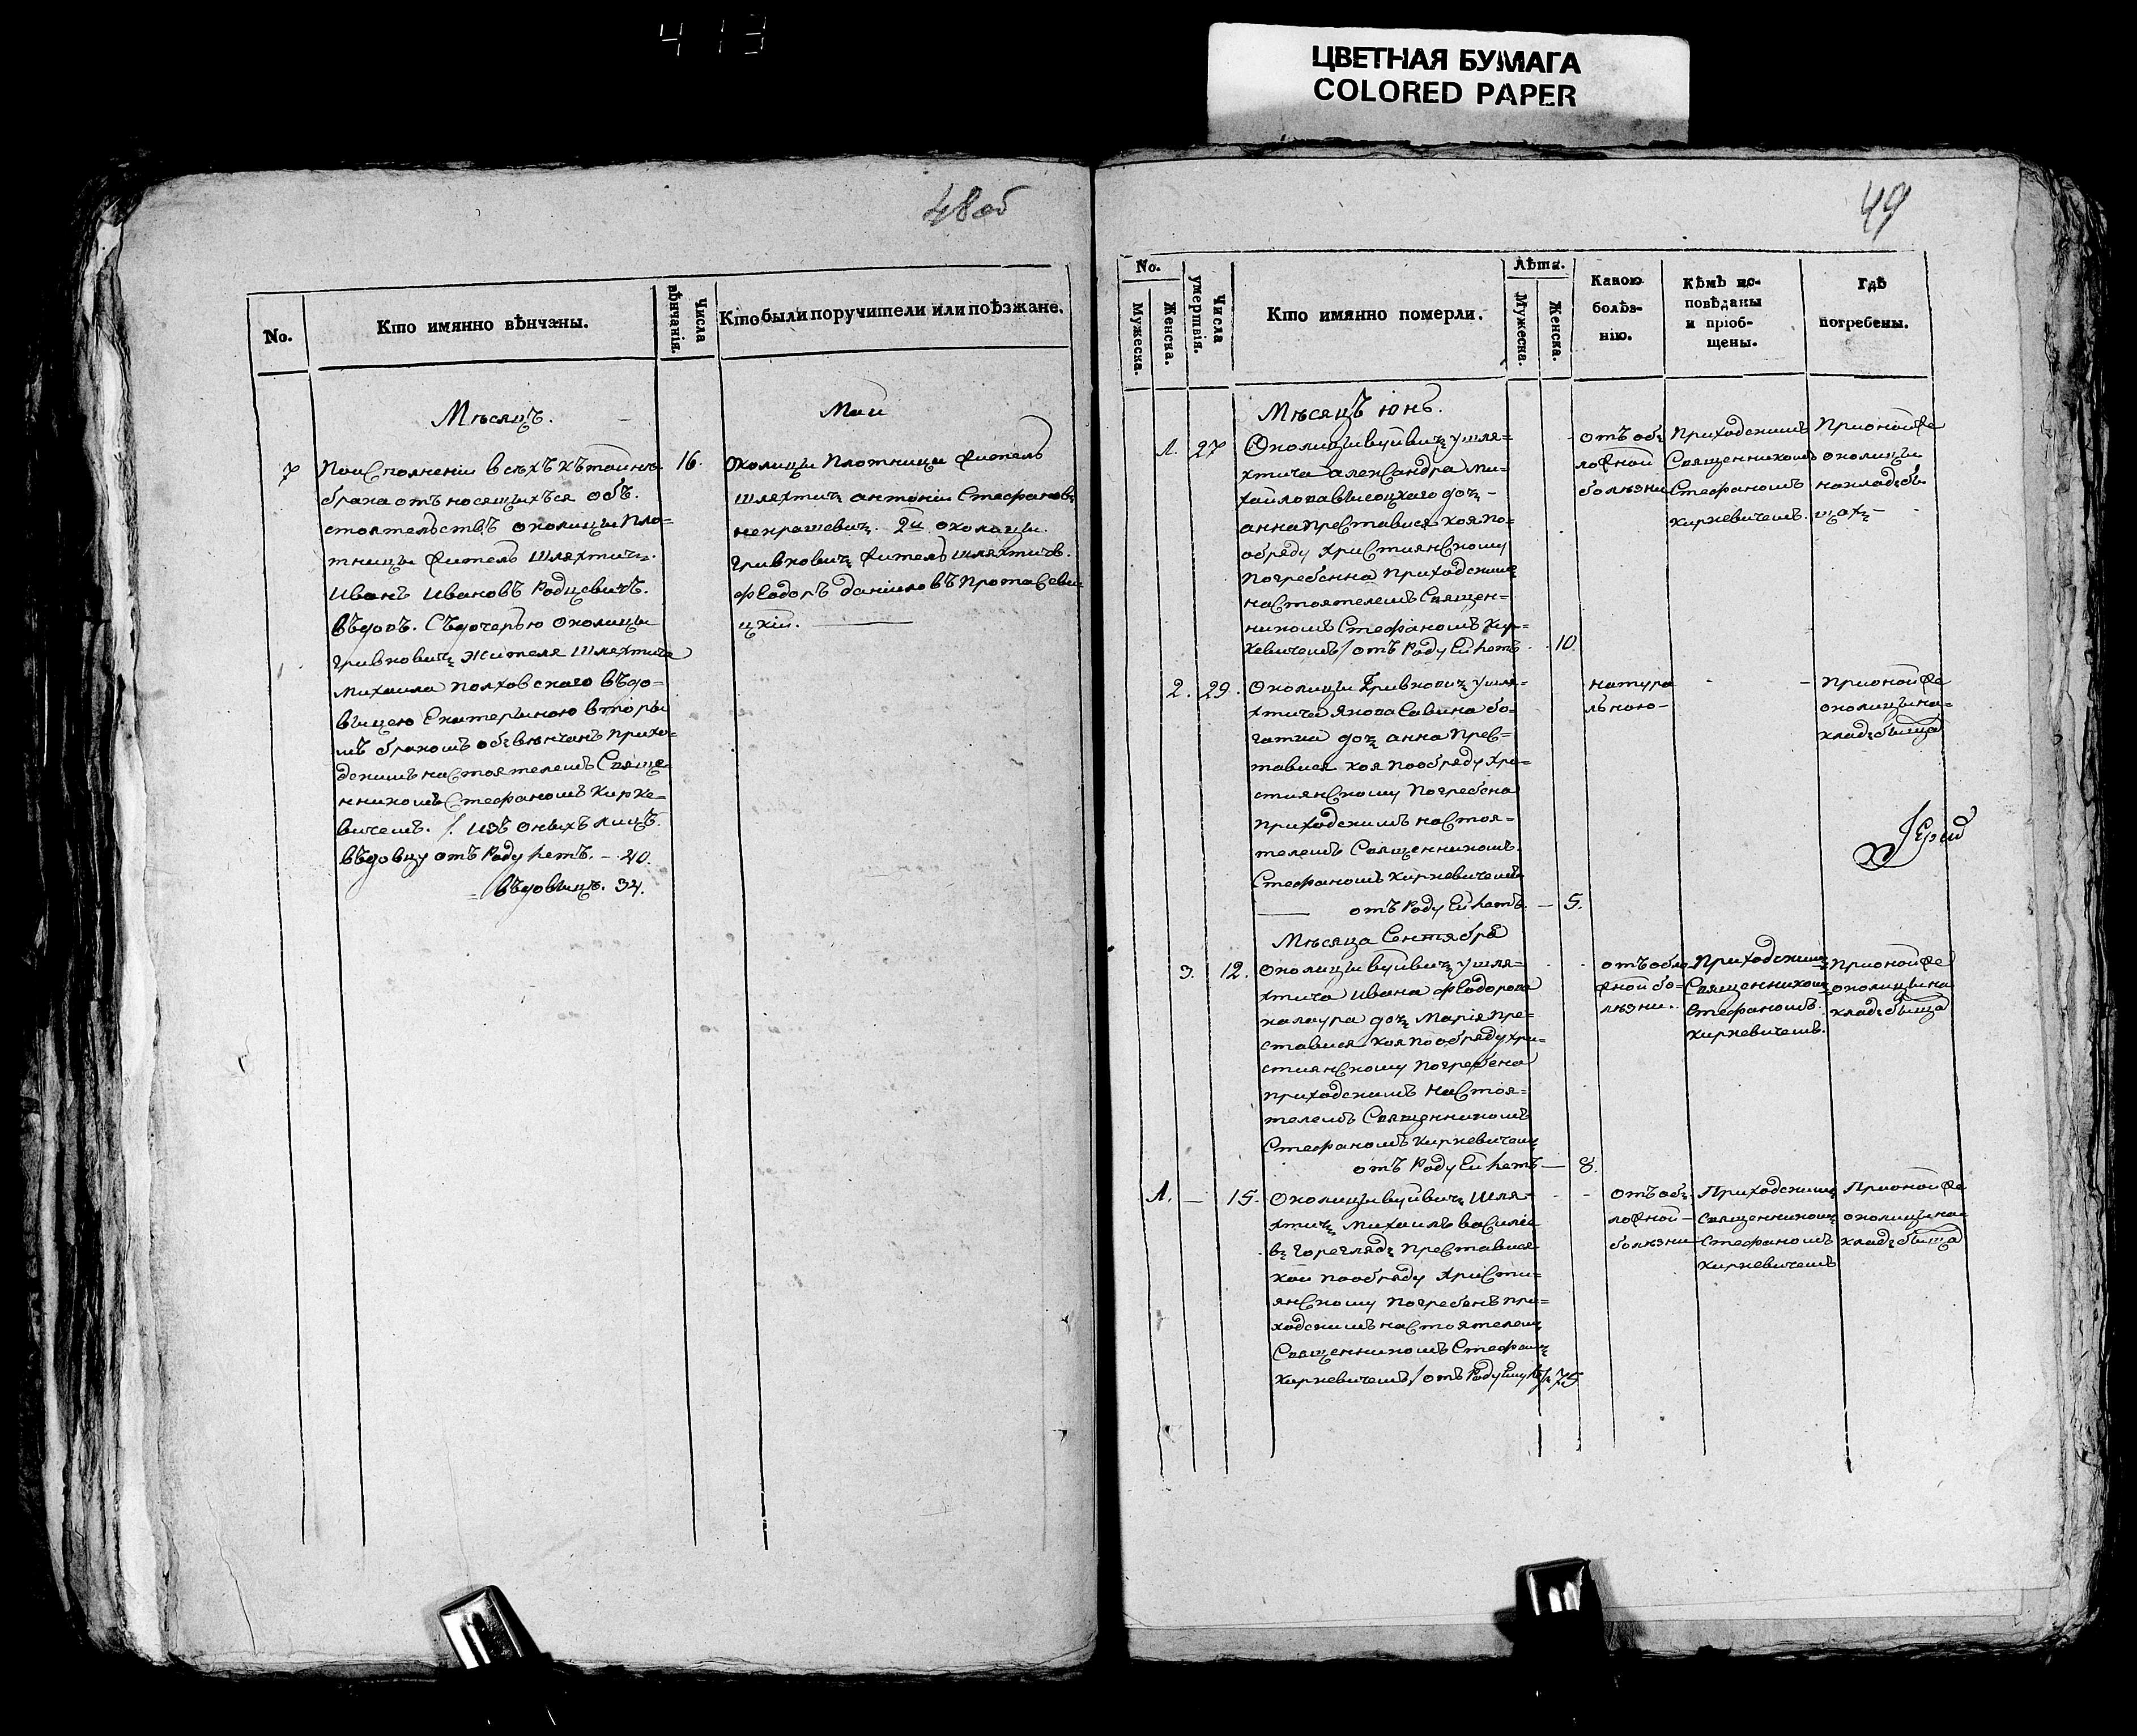 413
ЦВЕТНАЯ БУМАГА
COLORED PAPER
48 об
No.
Кто имянно вѣнчаны.
Числа
вѣнчанія.
Кто были поручители или поѣзжане.
Мѣсяцъ.
Маи
7
16.
По исполненіи всѣхъ къ тайнѣ
брака относящыхъся объ-
стоятельствъ околицы Пло-
тницы житель шляхтичъ
Иванъ Ивановъ Родцевичъ.
въдовъ. Съ дочерью околицы
Гривковичъ жителя шляхтича
Михаила Полховскаго въдо-
выцею Екатерыною вторы
мъ бракомъ объвѣнчанъ прихо-
дскимъ настоятелемъ Свяще-
нникомъ Стефаномъ Кирке-
вичемъ. /. изъ оныхъ лицъ.
въдовцу отъ роду летъ. - 40.
въдовыцѣ. 34.
Околицы Плотницы житель
шляхтичъ Антоній Стефановъ
Некрашевичъ. 2й околицы
Гривковичъ житель шляхтичъ.
Феодоръ Даніиловъ Протасеви-
цкій.
49
No.
Мужеска.
Женска.
Числа
умертвія.
Кто имянно померли.
Лѣта.
Мужеска.
Женска.
Какою
болѣз-
нію.
Кѣмъ ис-
повѣданы
и пріоб-
щены.
Гдѣ
погребены.
Мѣсяцъ юнь.
1. 27
Околицы Вуйвичъ у шля-
хтича Александра Ми-
хайлова Высоцкаго дочъ -
Анна преставися коя по-
обряду християнскому
погребенна приходскимъ
настоятелемъ Священ-
никомъ Стефаномъ Кир-
кевичемъ / отъ роду ей летъ. 10.
отъ объ
ложной
болѣзни
Приходскимъ
Священникомъ
Стефаномъ
Киркевичемъ.
При оной же
околицы
на кладъбы
щахъ -
2. 29.
Околицы Гривковичъ у шля-
хтича Якова Савина Бо-
гатка дочъ Анна прес-
тавися коя пообряду хри-
стиянскому погребена
приходскимъ настоя-
телемъ Священникомъ.
Стефаномъ Киркевичемъ
отъ роду ей летъ. - 5.
натура
льною -
При оной же
околицы на-
кладъбыща
Мѣсяца Сентября
3. 12.
Околицы Вуйвичъ у шля-
хтича Ивана Феодорова
Калаура дочъ Марія пре-
ставися коя пообряду хри-
стиянскому погребена
приходскимъ настоя-
телемъ Священникомъ
Стефаномъ Киркевичемъ
отъ роду ей летъ - 8.
отъ обло
жной бо-
лѣзни.
Приходскимъ
Священникомъ
Стефаномъ.
Киркевичемъ.
При оной же
околицы на
кладъбыща
1. - 15.
Околицы Вуйвичъ шля-
хтичъ Михаилъ Василіе
въ Гореглядъ преставися
кои пообряду христи-
янскому погребенъ при-
ходскимъ настоятелемъ
Священникомъ Стефаномъ
Киркевичемъ / отъ роду ему летъ 75
отъ объ
ложной -
болѣзни
Приходскимъ
Священникомъ
Стефаномъ
Киркевичемъ
При оной же
околицы на
кладъбыща